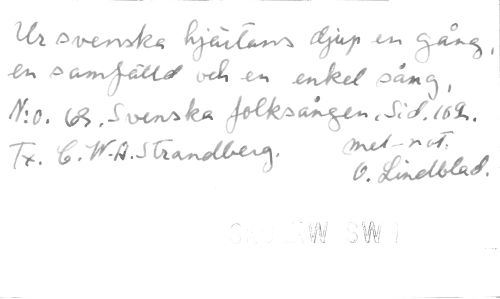 Ur svenska hjärtans djup en gång,
en samfälld och en enkel sång,
N:o. 69. Svenska folksången. Sid. 109.
Tx. C. W. A. Strandberg. mel-not.
O. Lindblad.